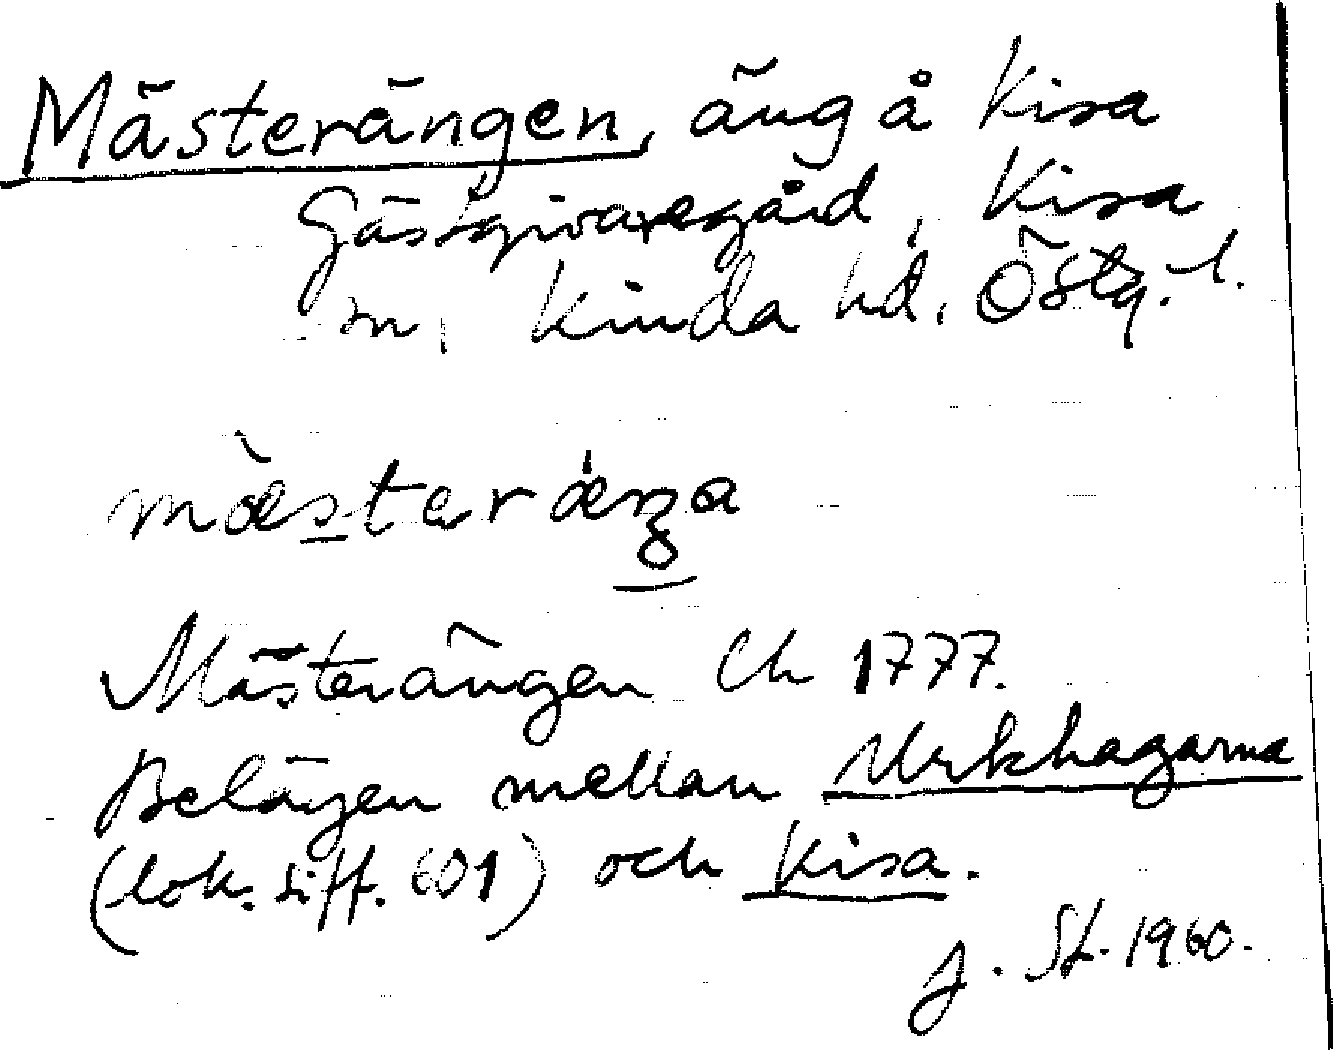 Mästerängen, äng å Kisa
Gästgivaregård, Kisa
sn, Kinda hd, Östg. l.
mæ̀steræ̀ŋa
Mästerängen Ch 1777.
Belägen mellan Urkhagarna
(lok. siff. 601) och Kisa.
J. St. 1960.